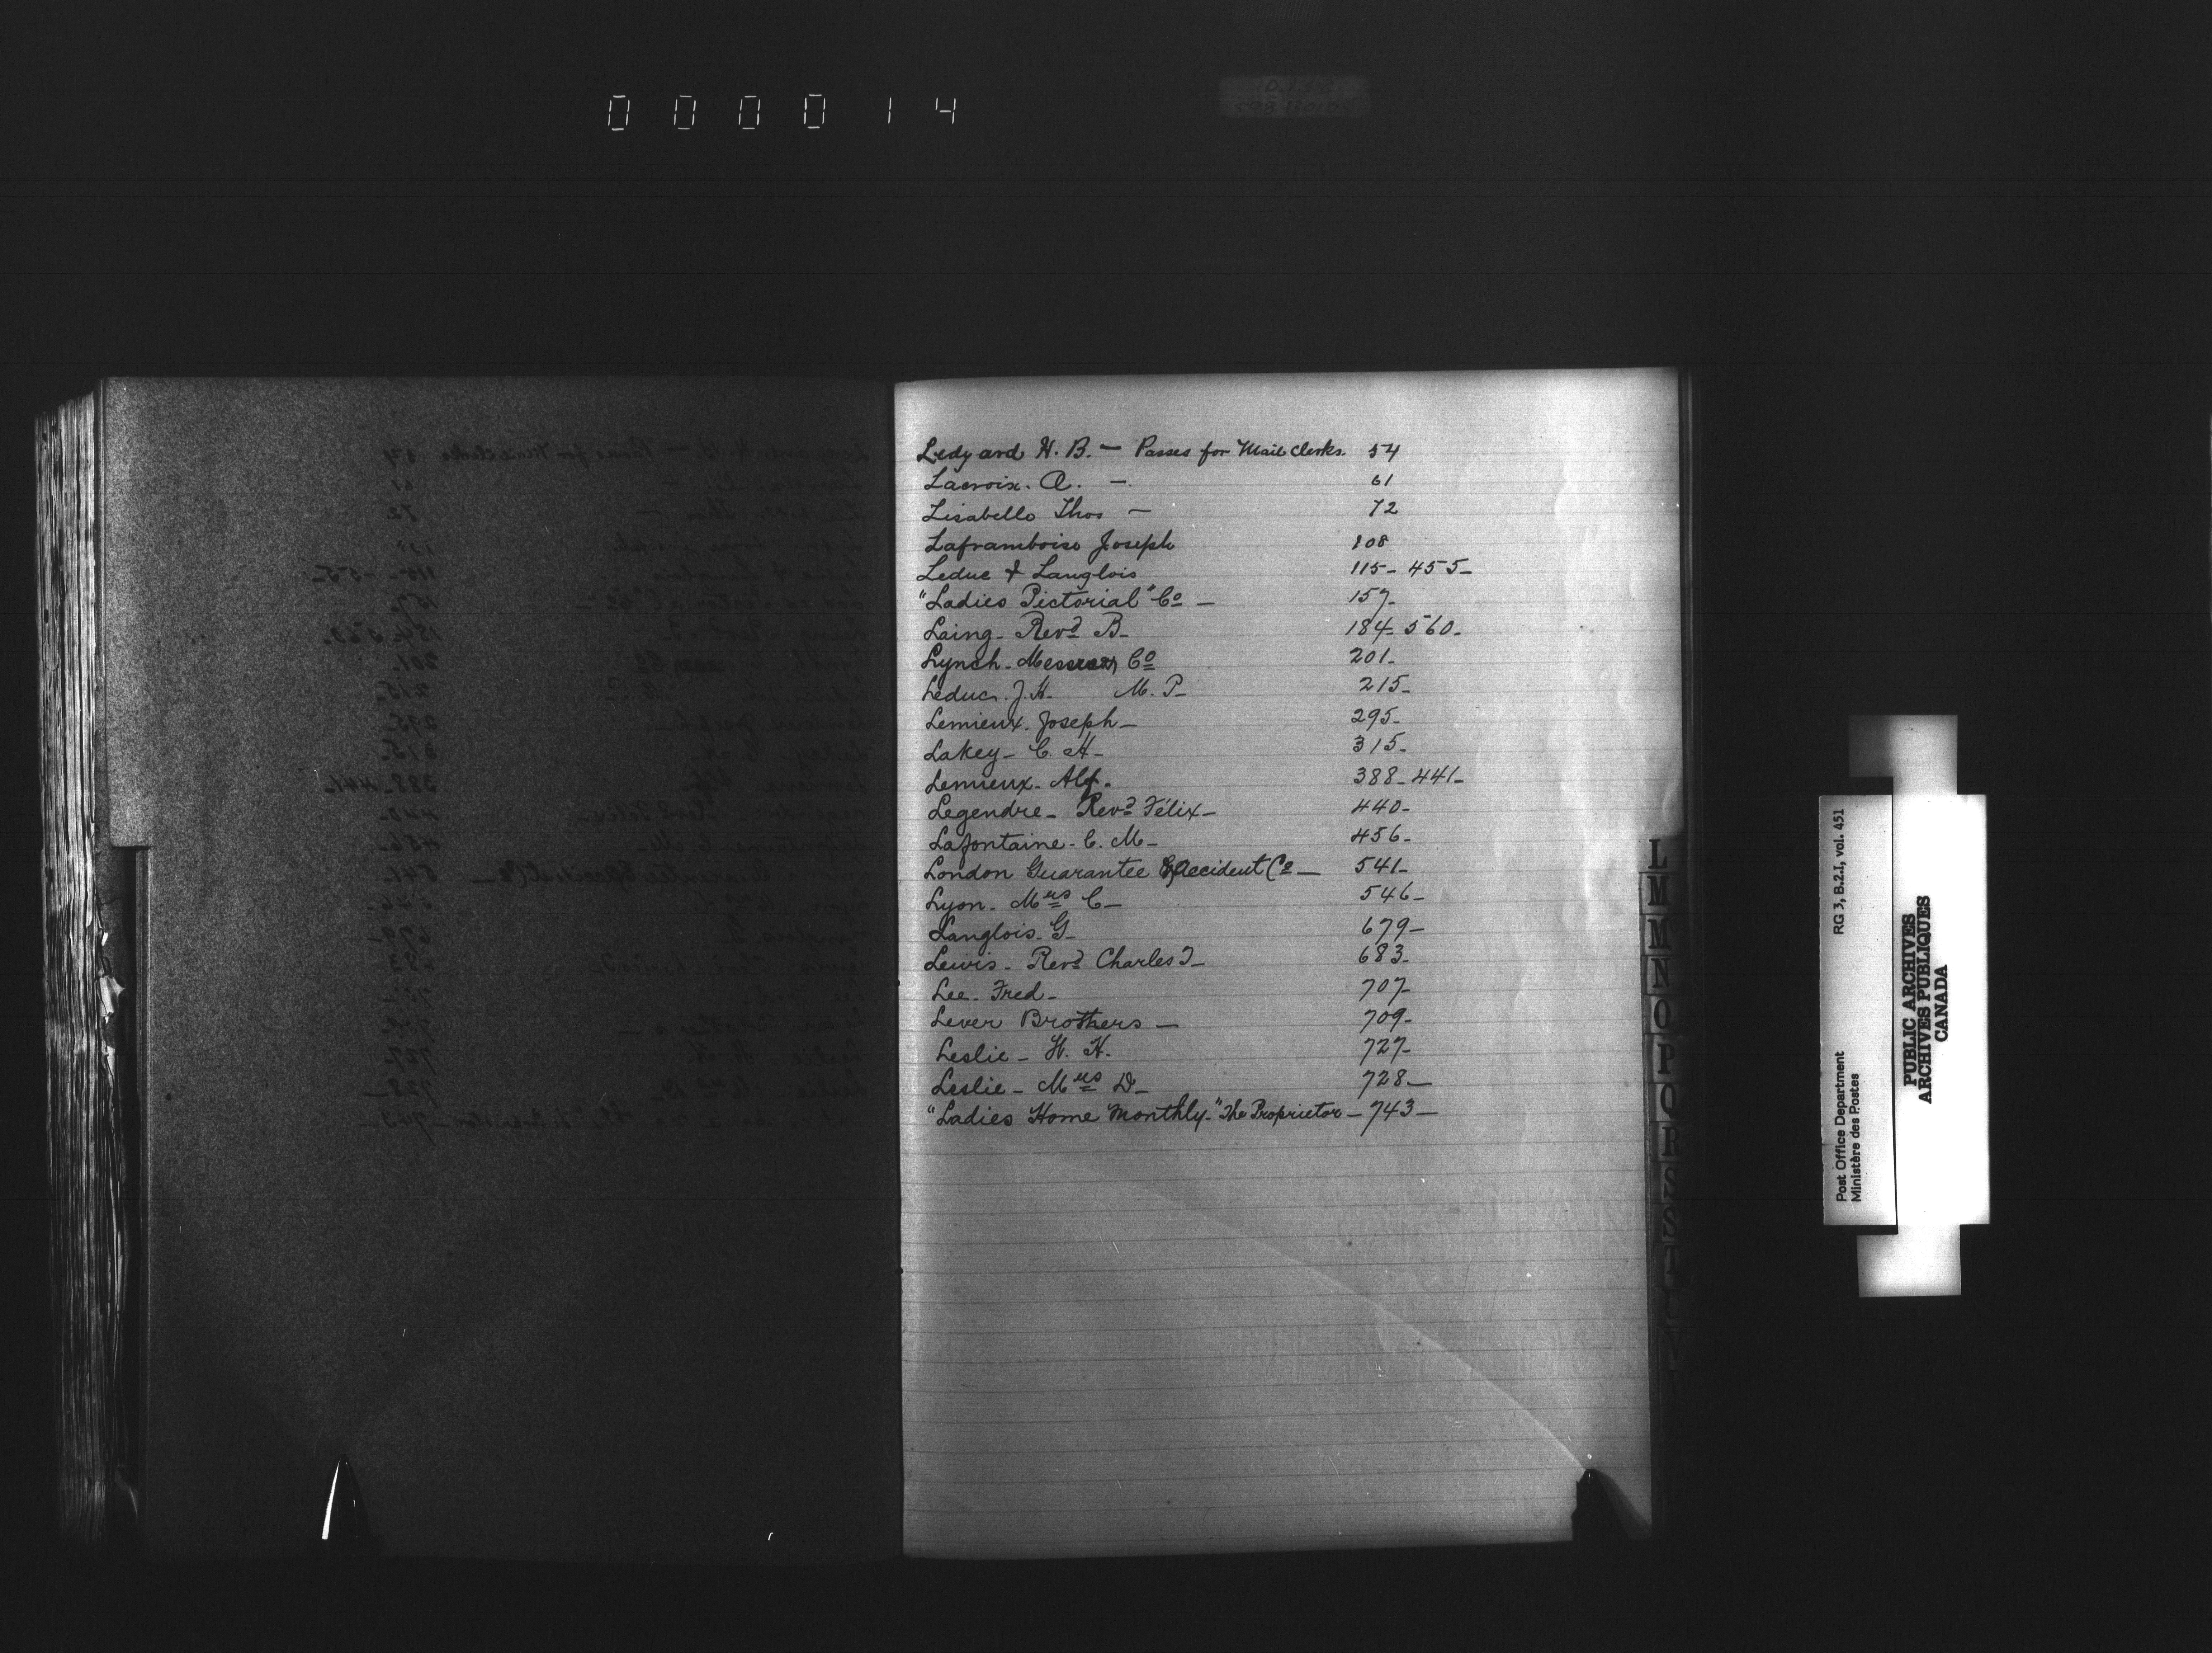 000014
Ledyard H. B. — Passes for Mail Clerks. 54
Lacroix. A. —. 61
Lisabelle Thos — 72
Laframboise Joseph 108
Leduc & Langlois 115- 455-
"Ladies Pictorial" Co — 157-
Laing- Revd B- 184- 560-
Lynch- Co 201-
Leduc. J. H- M. P- 215-
Lemieux. Joseph- 295-
Lakey- C. H- 315-
Lemieux- Alf- 388-441-
Legendre- Revd Félix- 440-
Lafontaine- C. M- 456-
London Guarantee & Accident Co — 541-
Lyon- Mrs C- 546-
Langlois- G- 679-
Lewis- Revd Charles T- 683-
Lee- Fred- 707-
Lever Brothers — 709-
Leslie- H. H- 727-
Leslie- Mrs D- 728-
"Ladies Home Monthly-" The Proprietor- 743-
L
M
M
N
O
P
Q
R
S
S
T
U
V
Post Office Department RG 3, B.2.I, vol. 451
Ministère des Postes
PUBLIC ARCHIVES
ARCHIVES PUBLIQUES
CANADA